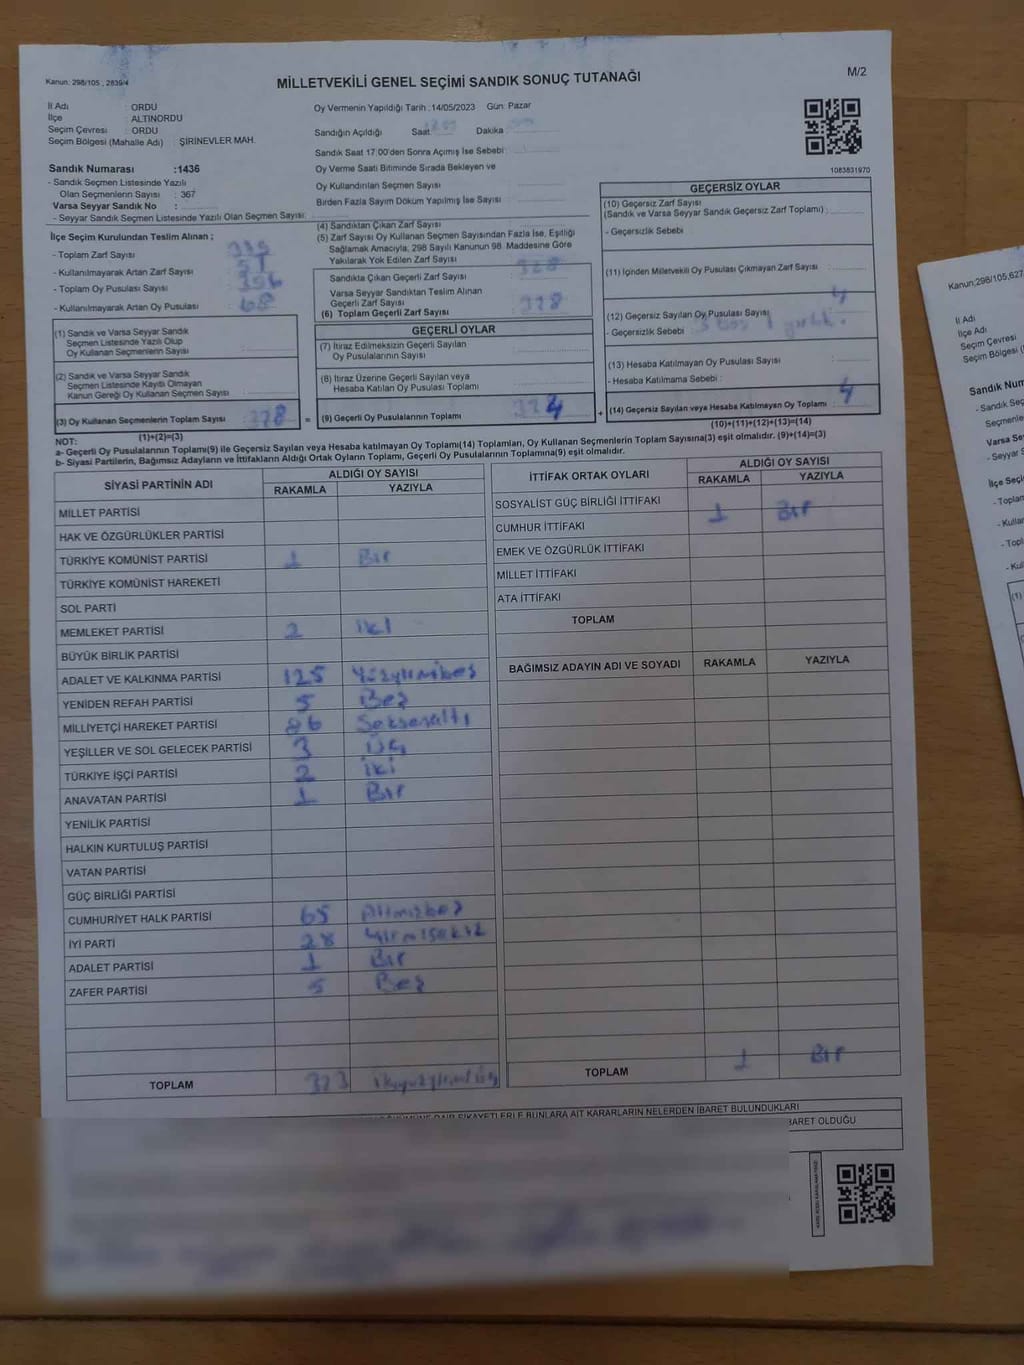 Kanun: 298/105 , 2839/4
MİLLETVEKİLİ GENEL SEÇİMİ SANDIK SONUÇ TUTANAĞI
M/2
İl Adı : ORDU
İlçe : ALTINORDU
Seçim Çevresi : ORDU
Seçim Bölgesi (Mahalle Adı) : ŞİRİNEVLER MAH.
Sandık Numarası :1436
- Sandık Seçmen Listesinde Yazılı
Olan Seçmenlerin Sayısı : 367
Varsa Seyyar Sandık No :
- Seyyar Sandık Seçmen Listesinde Yazılı Olan Seçmen Sayısı:
Oy Vermenin Yapıldığı Tarih :14/05/2023 Gün: Pazar
Sandığın Açıldığı Saat Dakika
Sandık Saat 17:00'den Sonra Açımış İse Sebebi:
Oy Verme Saati Bitiminde Sırada Bekleyen ve
Oy Kullandırılan Seçmen Sayısı
Birden Fazla Sayım Döküm Yapılmış İse Sayısı :
1083831970
İlçe Seçim Kurulundan Teslim Alınan ;
- Toplam Zarf Sayısı :
- Kullanılmayarak Artan Zarf Sayısı :
- Toplam Oy Pusulası :
- Kullanılmayarak Artan Oy Pusulası : 68
(1) Sandık ve Varsa Seyyar Sandık
Seçmen Listesinde Yazılı Olup
Oy Kullanan Seçmenlerin Sayısı :
(2) Sandık ve Varsa Seyyar Sandık
Seçmen Listesinde Kayıtlı Olmayan
Kanun Gereği Oy Kullanan Seçmen Sayısı :
(3) Oy Kullanan Seçmenlerin Toplam Sayısı : 328 =
(1)+(2)=(3)
(4) Sandıktan Çıkan Zarf Sayısı :
(5) Zarf Sayısı Oy Kullanan Seçmen Sayısından Fazla İse, Eşitliği
Sağlamak Amacıyla; 298 Sayılı Kanunun 98. Maddesine Göre
Yakılarak Yok Edilen Zarf Sayısı :
Sandıkta Çıkan Geçerli Zarf Sayısı : 328
Varsa Seyyar Sandıktan Teslim Alınan
Geçerli Zarf Sayısı :
(6) Toplam Geçerli Zarf Sayısı : 328
GEÇERLİ OYLAR
(7) İtiraz Edilmeksizin Geçerli Sayılan
Oy Pusulalarının Sayısı :
(8) İtiraz Üzerine Geçerli Sayılan veya
Hesaba Katılan Oy Pusulası Toplamı :
(9) Geçerli Oy Pusulalarının Toplamı : 324 +
GEÇERSİZ OYLAR
(10) Geçersiz Zarf Sayısı
(Sandık ve Varsa Seyyar Sandık Geçersiz Zarf Toplamı) :
- Geçersizlik Sebebi :
(11) İçinden Milletvekili Oy Pusulası Çıkmayan Zarf Sayısı :
(12) Geçersiz Sayılan Oy Pusulası Sayısı : 4
- Geçersizlik Sebebi : 3 boş 1 yırtık.
(13) Hesaba Katılmayan Oy Pusulası Sayısı :
- Hesaba Katılmama Sebebi :
(14) Geçersiz Sayılan veya Hesaba Katılmayan Oy Toplamı : 4
(10)+(11)+(12)+(13)=(14)
NOT:
a- Geçerli Oy Pusulalarının Toplamı(9) ile Geçersiz Sayılan veya Hesaba katılmayan Oy Toplamı(14) Toplamları, Oy Kullanan Seçmenlerin Toplam Sayısına(3) eşit olmalıdır. (9)+(14)=(3)
b- Siyasi Partilerin, Bağımsız Adayların ve İttifakların Aldığı Ortak Oyların Toplamı, Geçerli Oy Pusulalarının Toplamına(9) eşit olmalıdır.
SİYASİ PARTİNİN ADI ALDIĞI OY SAYISI
RAKAMLA YAZIYLA
MİLLET PARTİSİ
HAK VE ÖZGÜRLÜKLER PARTİSİ
TÜRKİYE KOMÜNİST PARTİSİ 1 Bir
TÜRKİYE KOMÜNİST HAREKETİ
SOL PARTİ
MEMLEKET PARTİSİ 2 iki
BÜYÜK BİRLİK PARTİSİ
ADALET VE KALKINMA PARTİSİ 125 Yüzyirmibeş
YENİDEN REFAH PARTİSİ 5 Beş
MİLLİYETÇİ HAREKET PARTİSİ 86 Seksenaltı
YEŞİLLER VE SOL GELECEK PARTİSİ 3 Üç
TÜRKİYE İŞÇİ PARTİSİ 2 iki
ANAVATAN PARTİSİ 1 Bir
YENİLİK PARTİSİ
HALKIN KURTULUŞ PARTİSİ
VATAN PARTİSİ
GÜÇ BİRLİĞİ PARTİSİ
CUMHURİYET HALK PARTİSİ 65 Altmışbeş
İYİ PARTİ 28 Yirmisekiz
ADALET PARTİSİ 1 Bir
ZAFER PARTİSİ 5 Beş
TOPLAM 323
İTTİFAK ORTAK OYLARI ALDIĞI OY SAYISI
RAKAMLA YAZIYLA
SOSYALİST GÜÇ BİRLİĞİ İTTİFAKI
CUMHUR İTTİFAKI 1 Bir
EMEK VE ÖZGÜRLÜK İTTİFAKI
MİLLET İTTİFAKI
ATA İTTİFAKI
TOPLAM
BAĞIMSIZ ADAYIN ADI VE SOYADI RAKAMLA YAZIYLA
TOPLAM 1 Bir
ŞİKAYETLERLE BUNLARA AİT KARARLARIN NELERDEN İBARET BULUNDUKLARI
İBARET OLDUĞU
Kanun;298/105,627
İl Adı
İlçe Adı
Seçim Çevresi
Seçim Bölgesi
Sandık Num
- Sandık Seç
Seçmenle
Varsa Se
- Seyyar S
İlçe Seçi
- Toplam
- Kullan
- Topl
- Kul
(1)